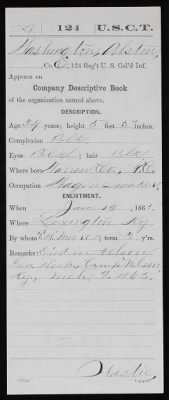 124 U.S.C.T.
Washington
Co. C, 124 Reg't U. S. Col'd Inf.
Appears on
Company Descriptive Book
of the organization named above.
DESCRIPTION.
Age 24 years; height 5 feet 5 inches.
Complexion Blk
Eyes Blk; hair Blk
Where born Marion Co, Ky.
Occupation Wagon maker
ENLISTMENT.
When Jany 19, 1865.
Where Lexington Ky
By whom; term 3 y'rs.
Remarks: Died in Nelson
Gen Hosp, Camp Nelson
Ky,
Copyist.